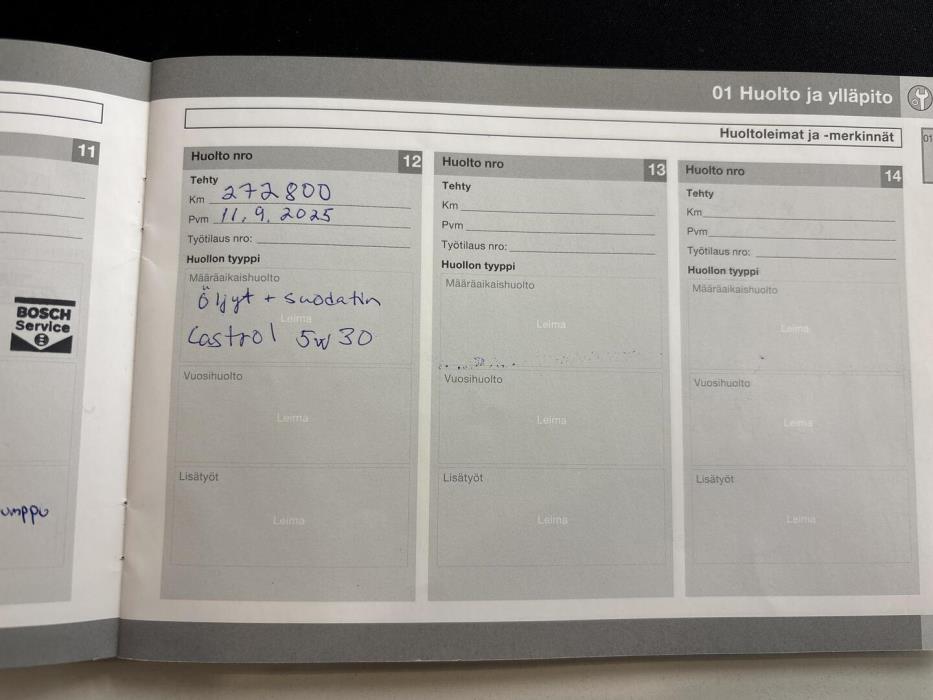 01 Huolto ja ylläpito
Huoltoleimat ja -merkinnät
01
11
BOSCH
Service
umppu
Huolto nro 12
Tehty
Km 272800
Pvm 11.9.2025
Työtilaus nro:
Huollon tyyppi
Määräaikaishuolto
Öljyt + suodatin
Leima
Castrol 5w30
Vuosihuolto
Leima
Lisätyöt
Leima
Huolto nro 13
Tehty
Km
Pvm
Työtilaus nro:
Huollon tyyppi
Määräaikaishuolto
Leima
Vuosihuolto
Leima
Lisätyöt
Leima
Huolto nro 14
Tehty
Km
Pvm
Työtilaus nro:
Huollon tyyppi
Määräaikaishuolto
Leima
Vuosihuolto
Leima
Lisätyöt
Leima